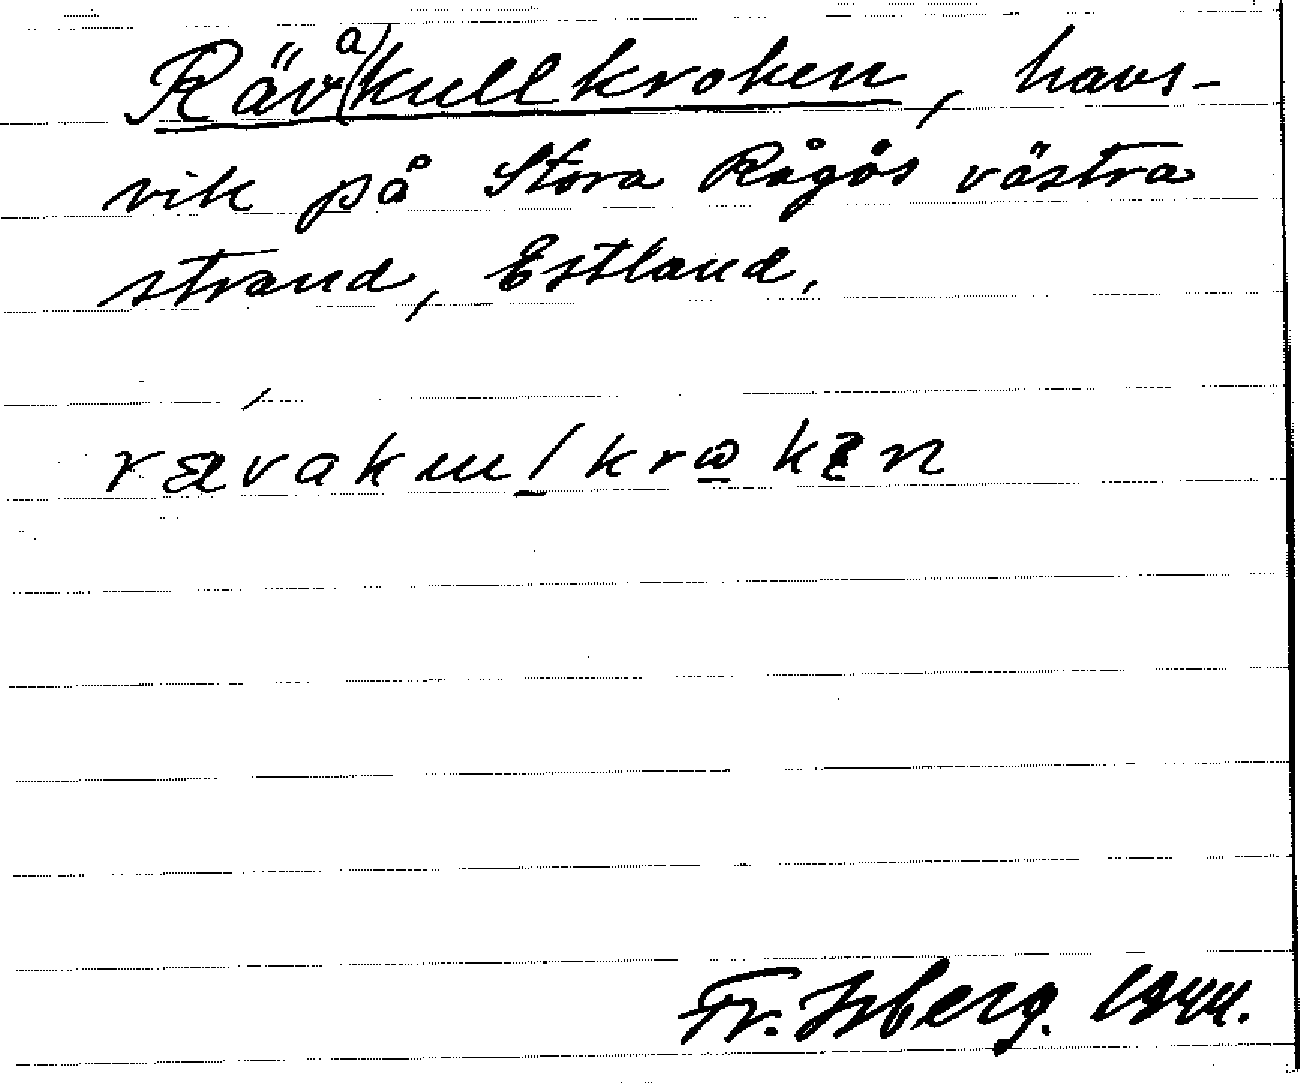 Räv(a)kullkroken, havs-
vik på Stora Rågös västra
strand, Estland.
rævakɯlkrωkən
Fr. Isberg. 1944.